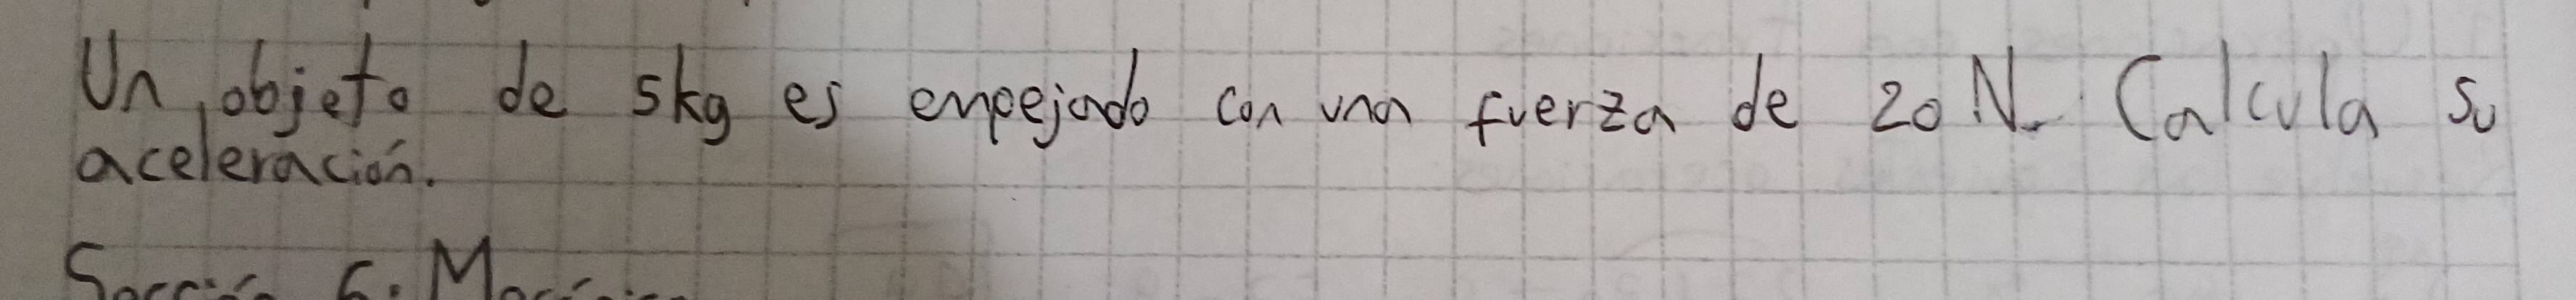 Un objeto de 5kg es empejado con una fuerza de 20 N. Calcula su
aceleración.